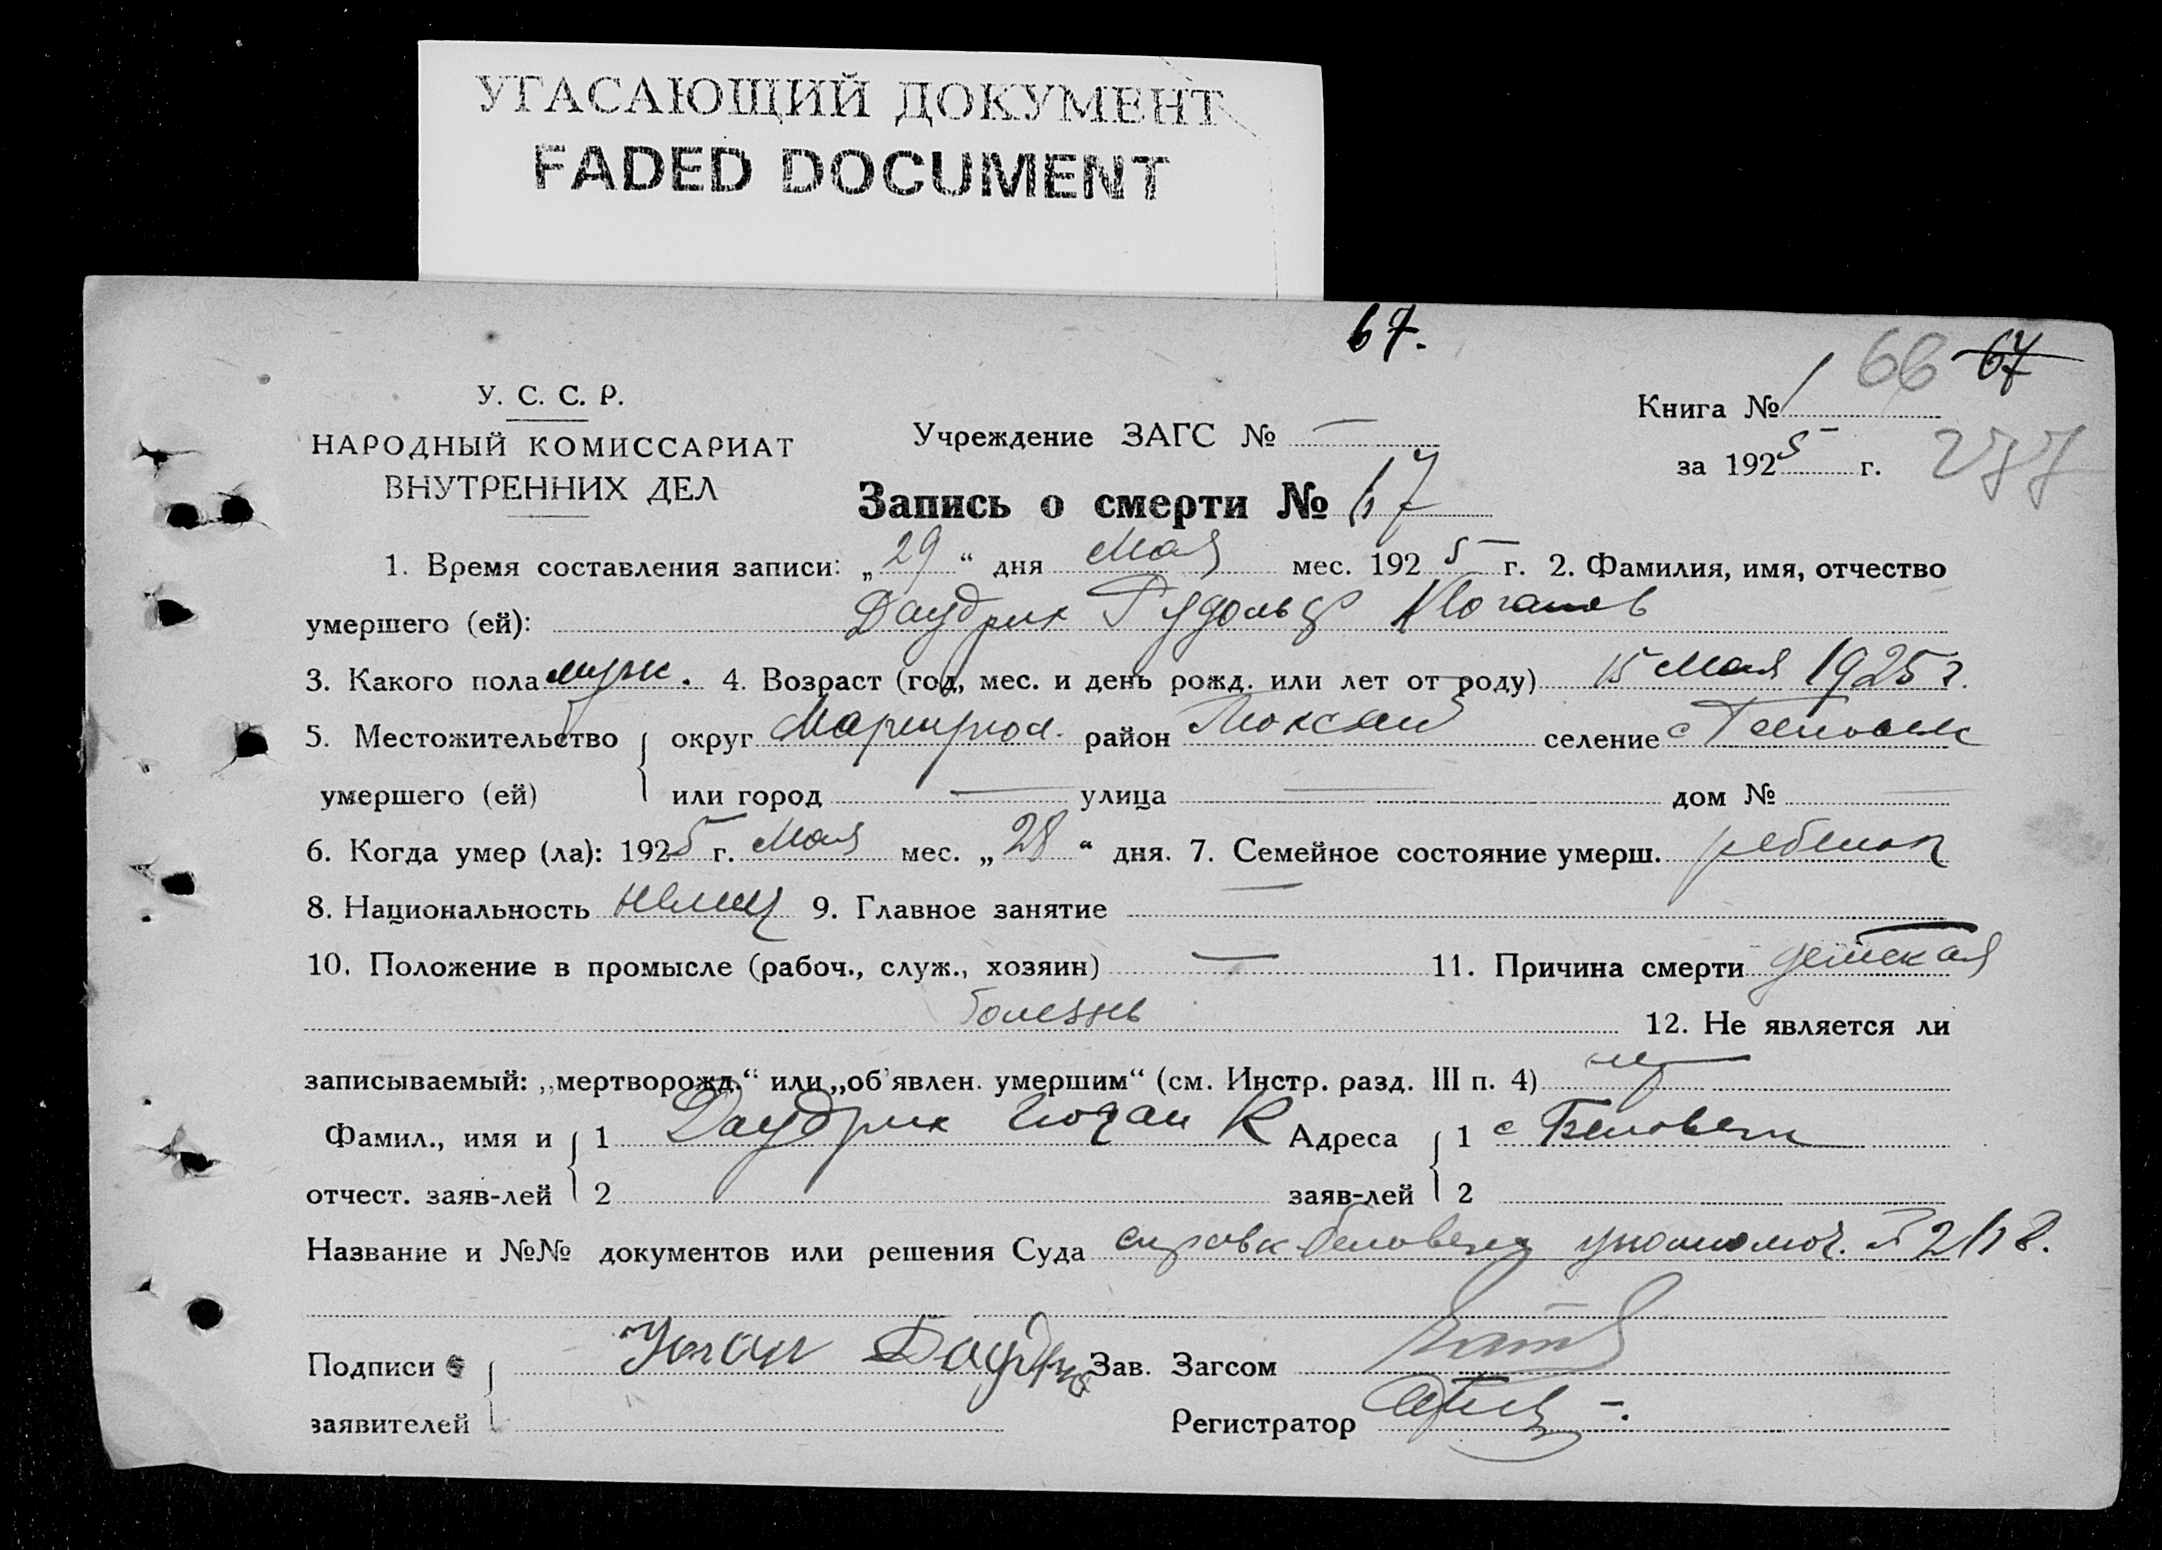 УГАСАЮЩИЙ ДОКУМЕНТ
FADED DOCUMENT
67.
66 67
У. С. С. Р.
Книга № 1
НАРОДНЫЙ КОМИССАРИАТ
ВНУТРЕННИХ ДЕЛ
Учреждение ЗАГС № —
за 1925 г. 277
Запись о смерти № 67
1. Время составления записи: „29“ дня Мая мес. 1925 г. 2. Фамилия, имя, отчество
умершего (ей): Даудрих Рудольф Иоганов
3. Какого пола муж. 4. Возраст (год, мес. и день рожд. или лет от роду) 15 Мая 1925 г.
5. Местожительство округ Мариупол. район Люксем селение с
умершего (ей) или город — улица — дом № —
6. Когда умер (ла): 1925 г. Мая мес. „28“ дня. 7. Семейное состояние умерш. ребенок
8. Национальность немец 9. Главное занятие —
10. Положение в промысле (рабоч., служ., хозяин) — 11. Причина смерти детская
болезнь 12. Не является ли
записываемый: „мертворожд.“ или „об'явлен. умершим“ (см. Инстр. разд. III п. 4) нет
Фамил., имя и 1 Даудрих Иоган К Адреса 1 с Беловеж
отчест. заяв-лей 2 заяв-лей 2
Название и №№ документов или решения Суда справк Беловеж уполномоч.
Подписи Иоган Даудрих Зав. Загсом
заявителей Регистратор